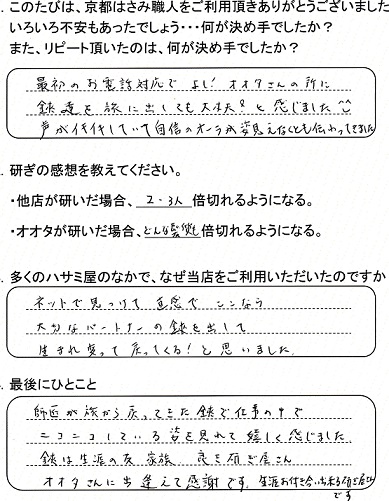 . このたびは、京都はさみ職人をご利用頂きありがとうございました
いろいろ不安もあったでしょう・・・何が決め手でしたか?
また、リピート頂いたのは、何が決め手でしたか?
最初のお電話対応で よし! オオタさんの所に
鋏達を旅に出しても大丈夫!と感じました
声が していて自信のオーラが姿見えなくとも伝わってきました
. 研ぎの感想を教えてください。
・他店が研いだ場合、2-3人倍切れるようになる。
・オオタが研いだ場合、どんな髪倍切れるようになる。
. 多くのハサミ屋のなかで、なぜ当店をご利用いただいたのですか
ネットで見つけて 直感で ここなら
大切なパートナーの鋏を出して
生まれ変って戻ってくる!と思いました
. 最後にひとこと
師匠が旅から戻ってきた鋏で仕事の中で
ニコニコしている姿を見れて嬉しく感じました
鋏は生涯の友 家族 良き研ぎ屋さん
オオタさんに出逢えて感謝です。生涯お付き合い出来る研ぎ屋さん
です